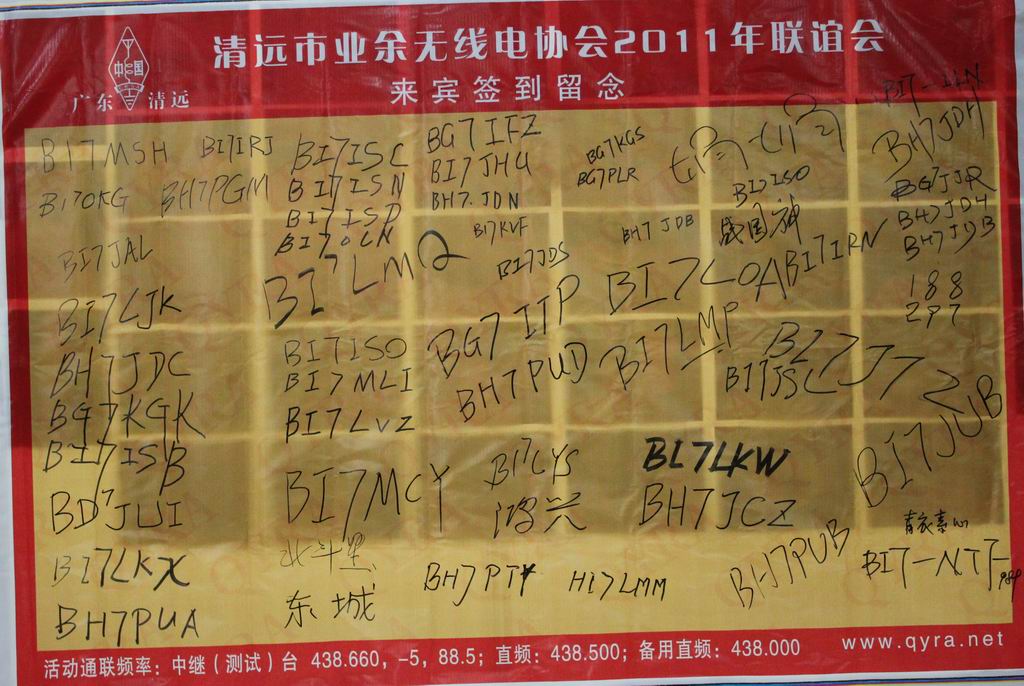 清远市业余无线电协会2011年联谊会
来宾签到留念
中国
广东 清远
BI7MSH
BI7IRJ
BI7ISC
BG7IFZ
BG7KGS
BI7OKG
BH7PGM
BI7ISN
BI7JHU
BG7PLR
BH7JDH
BI7ISD
BH7.JDN
BG7JJR
BI7OLN
BI7KVF
BH7JDB
BH7JDB
BI7JAL
BI7LMQ
BI7JDS
BI7LOA
BI7IRN
188
297
BI7LJK
BI7ISO
BG7ITP
BI7LMP
BH7JDC
BI7MLI
BH7PWD
BI7JSL
BG7KGK
BI7LVZ
BI7JUB
BI7ISB
BI7MCY
BI7CYS
BL7LKW
BD7JUI
鸿兴
BH7JCZ
BI7LKX
北斗星
BH7PTY
HI7LMM
BH7PUB
BH7PUA
东城
活动通联频率：中继（测试）台 438.660，-5，88.5；直频：438.500；备用直频：438.000
www.qyra.net